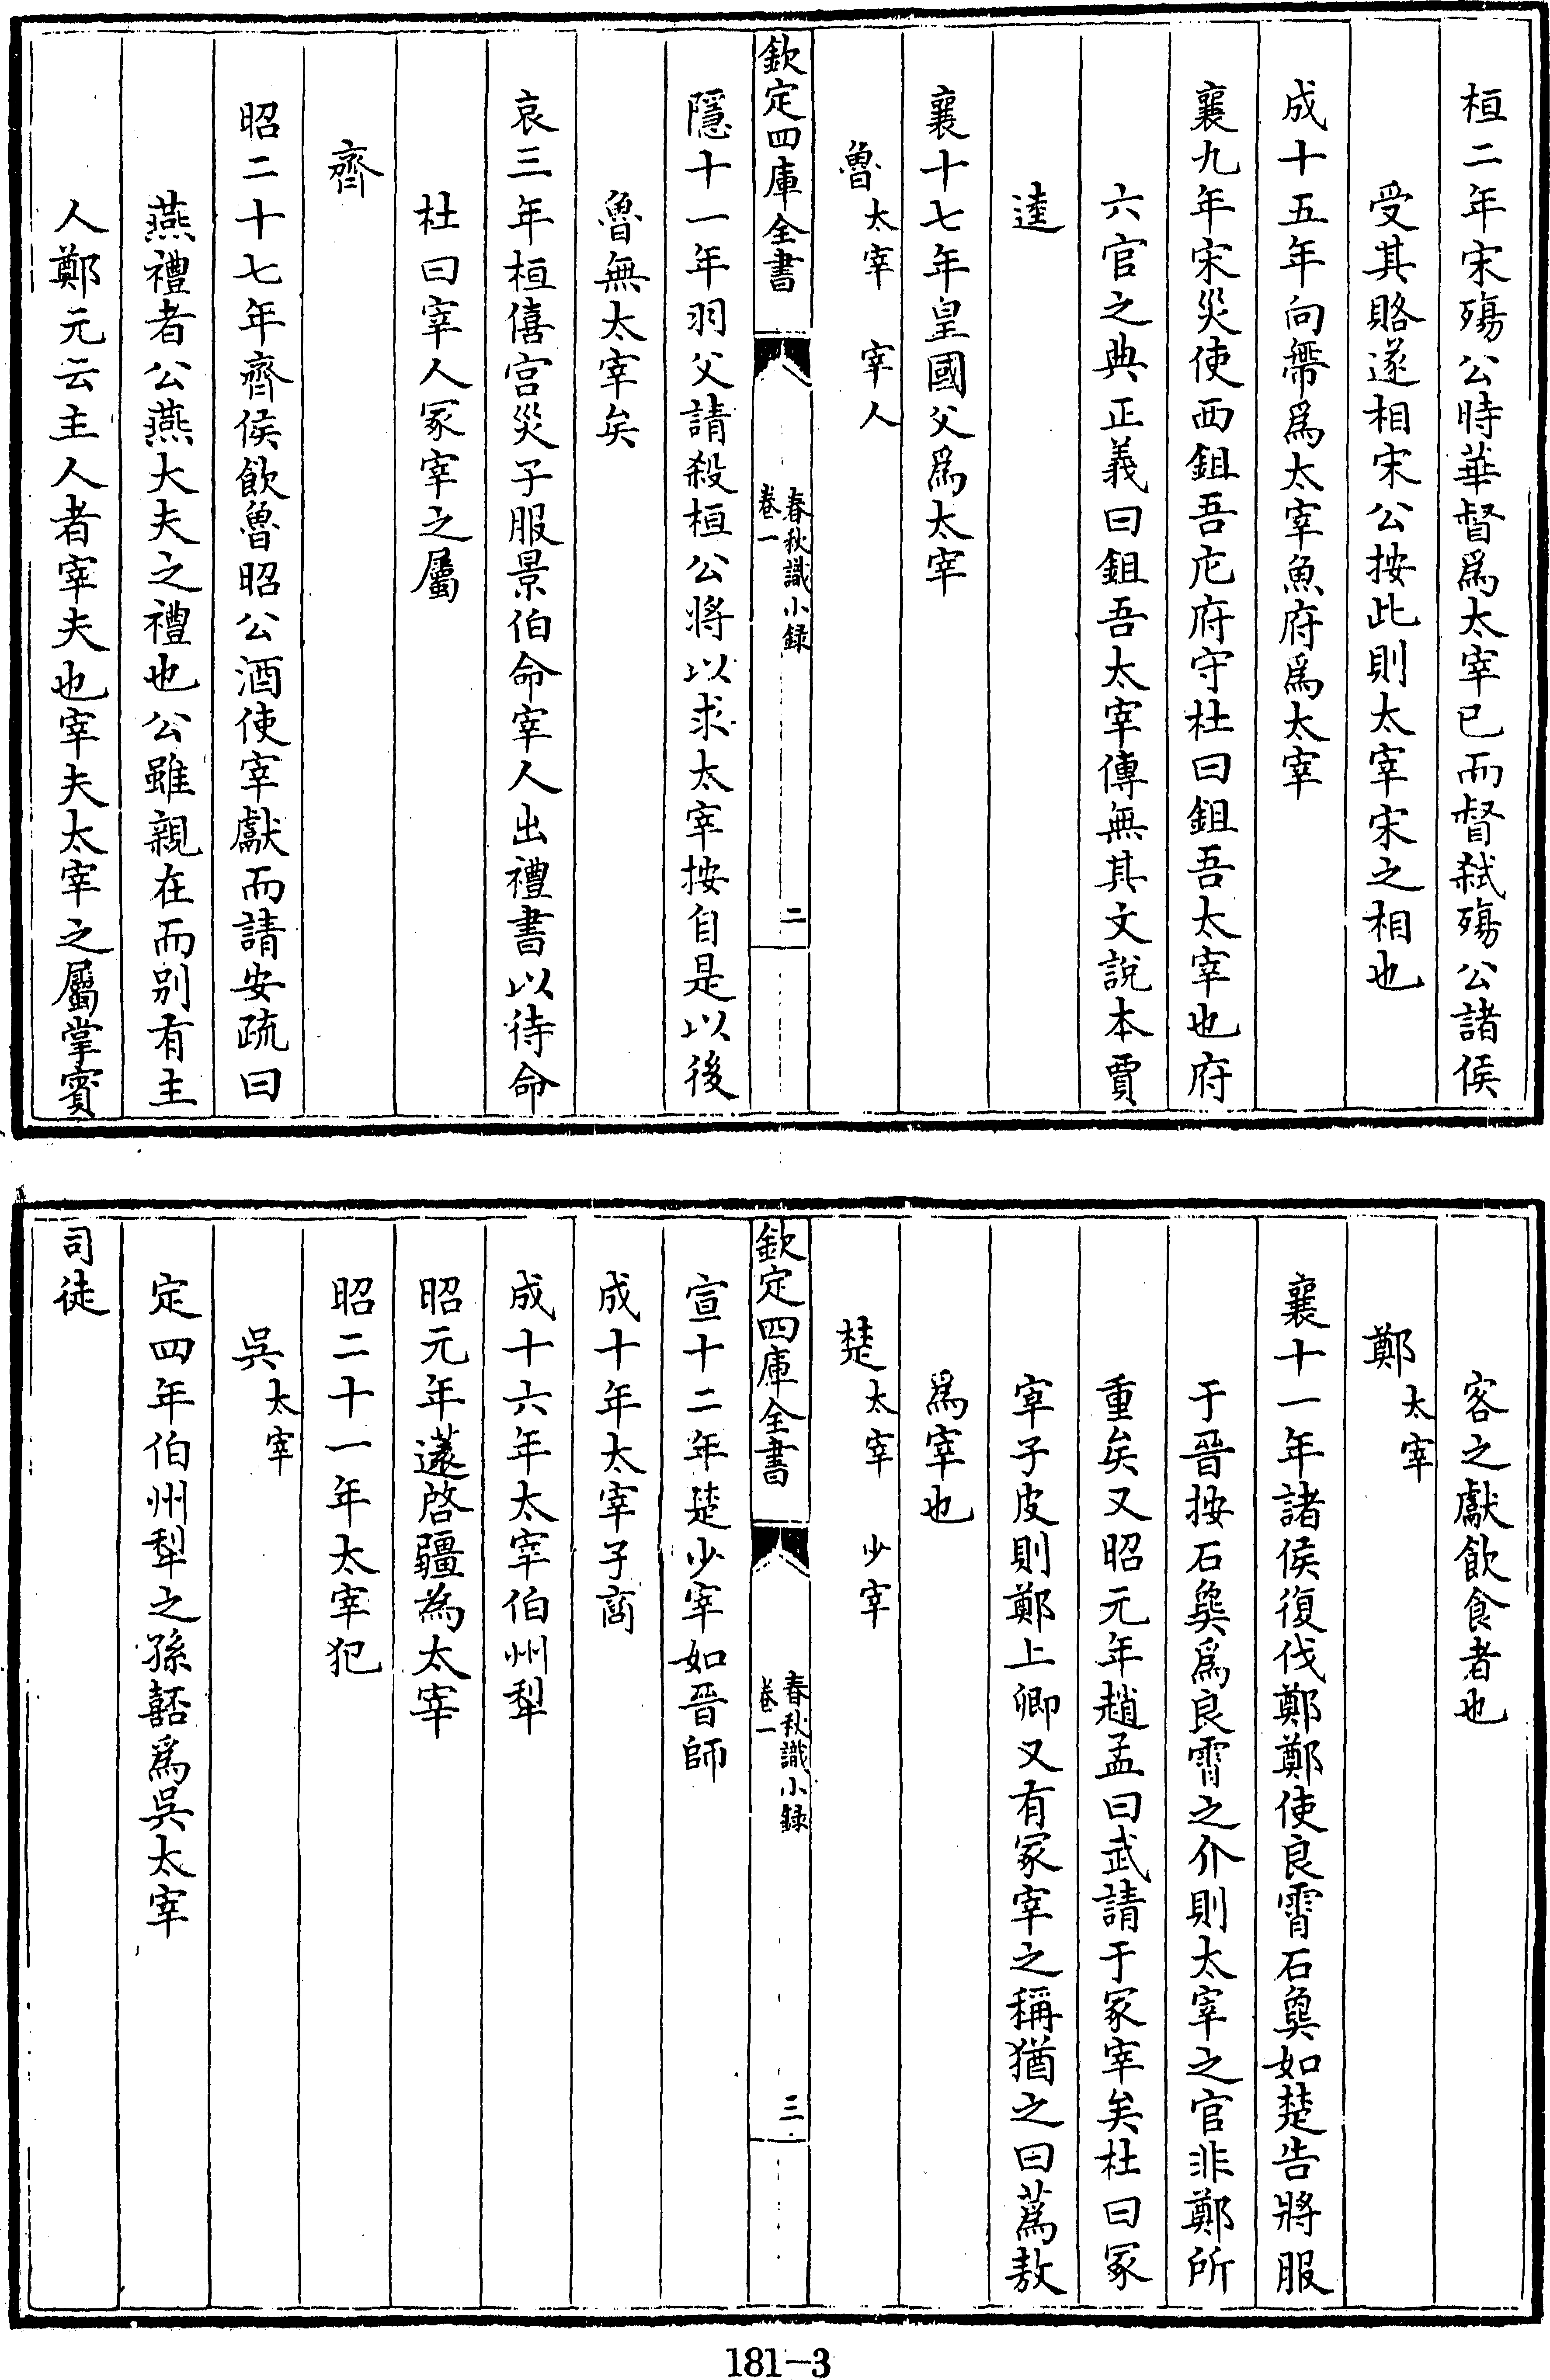 桓二年宋殤公時華督爲太宰已而督弑殤公諸侯
受其賂遂相宋公按此則太宰宋之相也
成十五年向帶爲太宰魚府爲太宰
襄九年宋災使西鉏吾庀府守杜曰鉏吾太宰也府
六官之典正義曰鉏吾太宰傳無其文説本賈
逵
襄十七年皇國父爲太宰
魯太宰 宰人
欽定四庫全書 春秋識小録 卷一 二
隱十一年羽父請殺桓公將以求太宰按自是以後
魯無太宰矣
哀三年桓僖宫災子服景伯命宰人出禮書以待命
杜曰宰人冢宰之屬
齊
昭二十七年齊侯飲魯昭公酒使宰獻而請安疏曰
燕禮者公燕大夫之禮也公雖親在而别有主
人鄭元云主人者宰夫也宰夫太宰之屬掌賓
客之獻飲食者也
鄭太宰
襄十一年諸侯復伐鄭鄭使良霄石㚟如楚告將服
于晉按石㚟爲良霄之介則太宰之官非鄭所
重矣又昭元年趙孟曰武請于冢宰矣杜曰冢
宰子皮則鄭上卿又有冢宰之稱猶之曰蒍敖
爲宰也
楚太宰 少宰
欽定四庫全書 春秋識小録 卷一 三
宣十二年楚少宰如晉師
成十年太宰子商
成十六年太宰伯州犁
昭元年薳啓疆為太宰
昭二十一年太宰犯
吳太宰
定四年伯州犁之孫嚭爲吳太宰
司徒
181-3